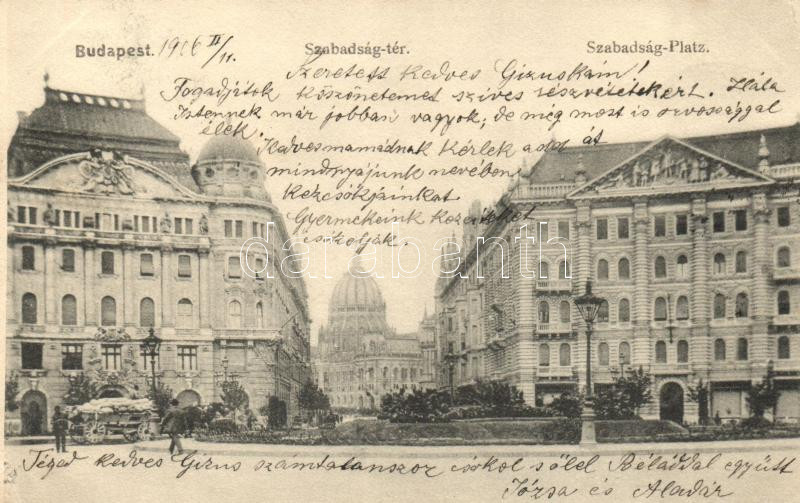 Budapest. 1916 II/11. Szabadság-tér. Szabadság-Platz.
Szeretett kedves Gizuskám!
Fogadjátok köszönetemet szíves részvétetekért. Hála
Istennek már jobban vagyok, de még most is orvossággal
élek.
Kedves mamádnak kérlek add át
mindnyájunk nevében
kézcsókjainkat
Gyermekeink kezeiteket
csókolják.
darabanth
Téged kedves Gizus számtalanszor csókol s ölel Bélával együtt
Józsa és Aladár